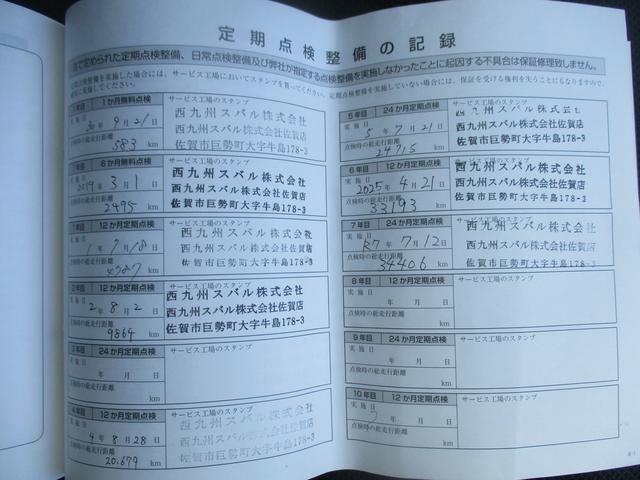 定期点検整備の記録
法で定められた定期点検整備、日常点検整備及び弊社が指定する点検整備を実施しなかったことに起因する不具合は保証修理致しません。
定期点検整備を実施した場合には、サービス工場においてスタンプを貰ってください。定期点検整備を実施していない場合には、保証を受ける権利を失うことになりますので、
必ず実施してください。
1か月無料点検
サービス工場のスタンプ
実施日
30年9月21日
点検時の総走行距離
583 km
西九州スバル株式会社
西九州スバル株式会社佐賀店
佐賀市巨勢町大字牛島178-3
6か月無料点検
サービス工場のスタンプ
実施日
2019年3月1日
点検時の総走行距離
2495 km
西九州スバル株式会社
西九州スバル株式会社佐賀店
佐賀市巨勢町大字牛島178-3
1年目 12か月定期点検
サービス工場のスタンプ
実施日
1年7月18日
点検時の総走行距離
km
西九州スバル株式会社
西九州スバル株式会社佐賀店
佐賀市巨勢町大字牛島178-3
2年目 12か月定期点検
サービス工場のスタンプ
実施日
2年8月2日
点検時の総走行距離
9864 km
西九州スバル株式会社
西九州スバル株式会社佐賀店
佐賀市巨勢町大字牛島178-3
3年目 24か月定期点検
サービス工場のスタンプ
実施日
年 月 日
点検時の総走行距離
km
4年目 12か月定期点検
サービス工場のスタンプ
実施日
4年8月28日
点検時の総走行距離
20.679 km
西九州スバル株式会社
西九州スバル株式会社佐賀店
佐賀市巨勢町大字牛島178-3
5年目 24か月定期点検
サービス工場のスタンプ
実施日
5年7月21日
点検時の総走行距離
24715 km
西九州スバル株式会社
西九州スバル株式会社佐賀店
佐賀市巨勢町大字牛島178-3
6年目 12か月定期点検
サービス工場のスタンプ
実施日
2025年4月21日
点検時の総走行距離
33193 km
西九州スバル株式会社
西九州スバル株式会社佐賀店
佐賀市巨勢町大字牛島178-3
7年目 24か月定期点検
サービス工場のスタンプ
実施日
R7年7月12日
点検時の総走行距離
34406 km
西九州スバル株式会社
西九州スバル株式会社佐賀店
佐賀市巨勢町大字牛島178-3
8年目 12か月定期点検
サービス工場のスタンプ
実施日
年 月 日
点検時の総走行距離
km
9年目 24か月定期点検
サービス工場のスタンプ
実施日
年 月 日
点検時の総走行距離
km
10年目 12か月定期点検
サービス工場のスタンプ
実施日
年 月 日
点検時の総走行距離
km